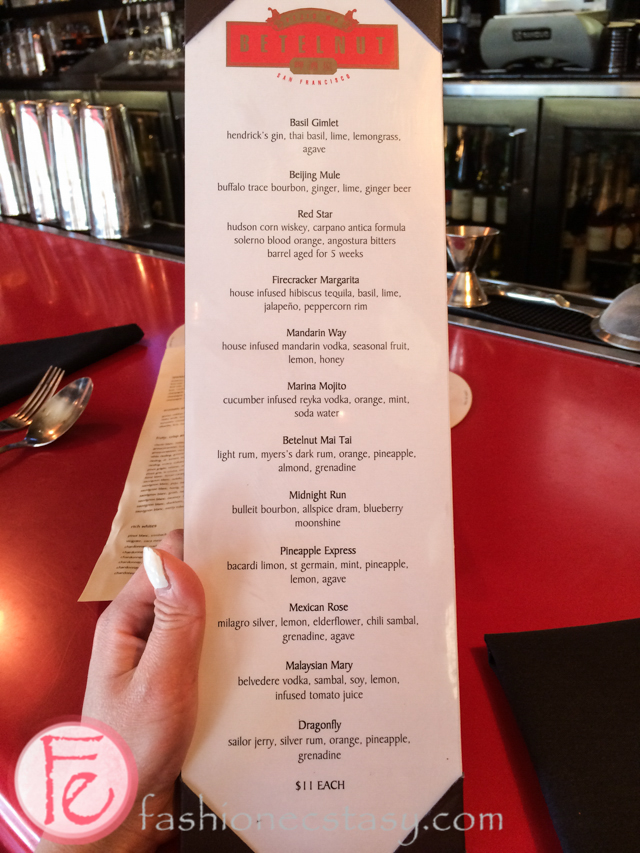 BETELNUT
SAN FRANCISCO
Basil Gimlet
hendrick's gin, thai basil, lime, lemongrass,
agave
Beijing Mule
buffalo trace bourbon, ginger, lime, ginger beer
Red Star
hudson corn wiskey, carpano antica formula
solerno blood orange, angostura bitters
barrel aged for 5 weeks
Firecracker Margarita
house infused hibiscus tequila, basil, lime,
jalapeño, peppercorn rim
Mandarin Way
house infused mandarin vodka, seasonal fruit,
lemon, honey
Marina Mojito
cucumber infused reyka vodka, orange, mint,
soda water
Betelnut Mai Tai
light rum, myers's dark rum, orange, pineapple,
almond, grenadine
Midnight Run
bulleit bourbon, allspice dram, blueberry
moonshine
Pineapple Express
bacardi limon, st germain, mint, pineapple,
lemon, agave
Mexican Rose
milagro silver, lemon, elderflower, chili sambal,
grenadine, agave
Malaysian Mary
belvedere vodka, sambal, soy, lemon,
infused tomato juice
Dragonfly
sailor jerry, silver rum, orange, pineapple,
grenadine
$11 EACH
Fe
fashionecstasy.com